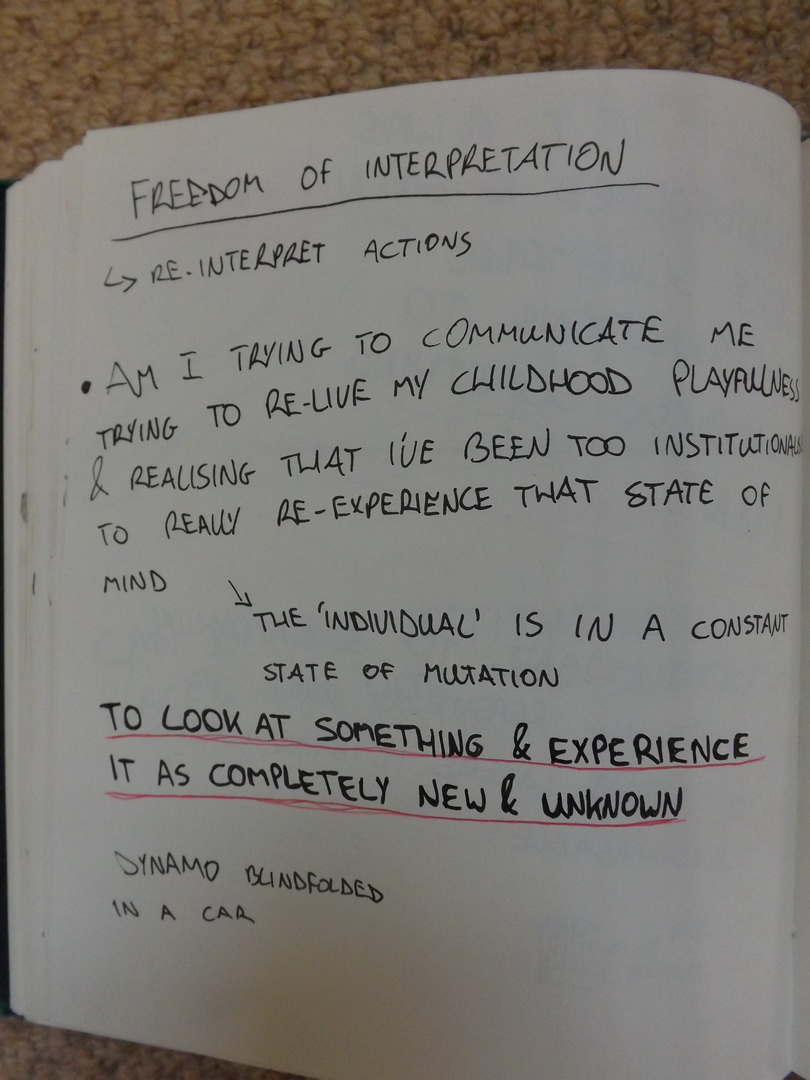 FREEDOM OF INTERPRETATION
↳ RE-INTERPRET ACTIONS
• AM I TRYING TO COMMUNICATE ME
TRYING TO RE-LIVE MY CHILDHOOD PLAYFULNESS
& REALISING THAT I'VE BEEN TOO
TO REALLY RE-EXPERIENCE THAT STATE OF
MIND
↘ THE 'INDIVIDUAL' IS IN A CONSTANT
STATE OF MUTATION
TO LOOK AT SOMETHING & EXPERIENCE
IT AS COMPLETELY NEW & UNKNOWN
DYNAMO BLINDFOLDED
IN A CAR